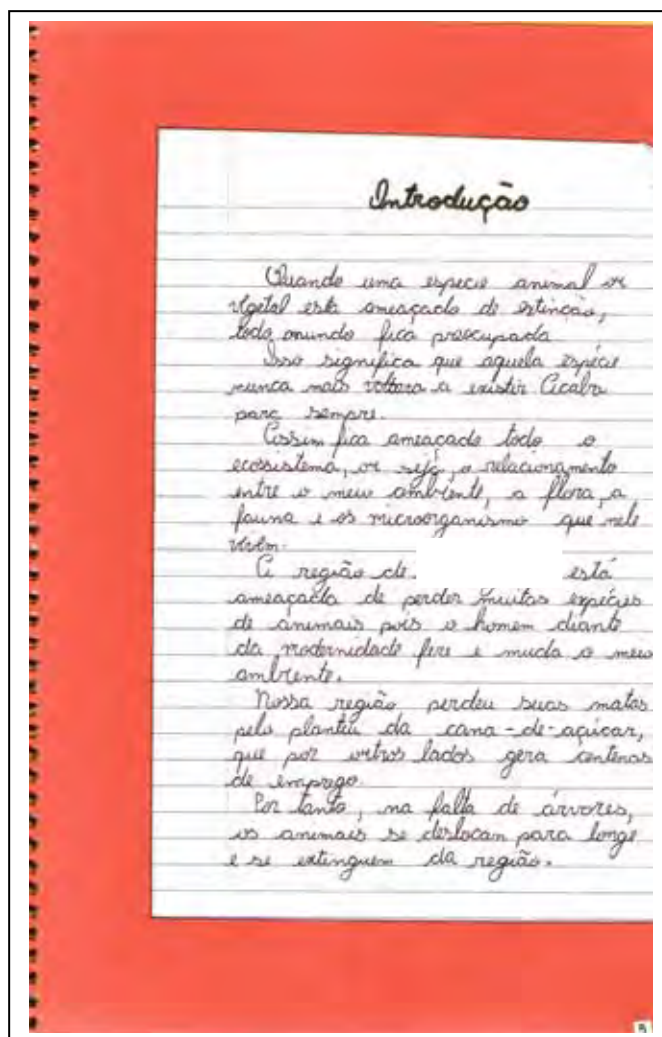 Introdução
Quando uma especie animal or
vegetal está ameaçado de extincão,
todo mundo fica preocupada
Isso significa que aquela espécie
nunca mais voltara a existir Acaba
para sempre.
Assim fica ameaçado todo o
ecossistema, or seja, o relacionamento
entre o meu ambiente, a flora, a
fauna e os microorganismo que nele
vivem.
A região de está
ameaçada de perder muitas espécies
de animais pois o homem diante
da modernidade fere e muda o meu
ambiente.
Nossa região perdeu suas matas
pelo plantiu da cana-de-açúcar,
que por outros lados gera centenas
de emprego.
Por tanto, na falta de árvores,
os animais se deslocan para longe
e se extinguem da região.
5